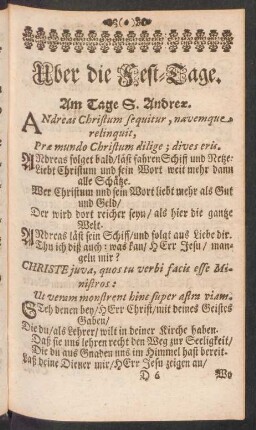 Uber die Fest-Tage.
Am Tage S. Andreæ.
ANdreas Christum sequitur, navemque
relinquit,
Præ mundo Christum dilige; dives eris.
ANdreas folget bald/ läst fahren Schiff und Netze/
Liebt Christum und sein Wort weit mehr dann
alle Schätze.
Wer Christum und sein Wort liebt mehr als Gut
und Geld/
Der wird dort reicher seyn/ als hier die gantze
Welt.
ANdreas läst sein Schiff/ und folgt aus Liebe dir.
Thu ich diß auch: was kan/ HErr Jesu/ man-
geln mir?
CHRISTE juva, quos tu verbi facis esse Mi-
nistros:
Ut veram monstrent hinc super astra viam.
STeh denen bey/ HErr Christ/ mit deines Geistes
Gaben/
Die du/ als Lehrer/ wilt in deiner Kirche haben.
Daß sie uns lehren recht den Weg zur Seeligkeit/
Die du aus Gnaden uns im Himmel hast bereit.
Laß deine Diener mir/ HErr Jesu zeigen an/
D 6 Wo